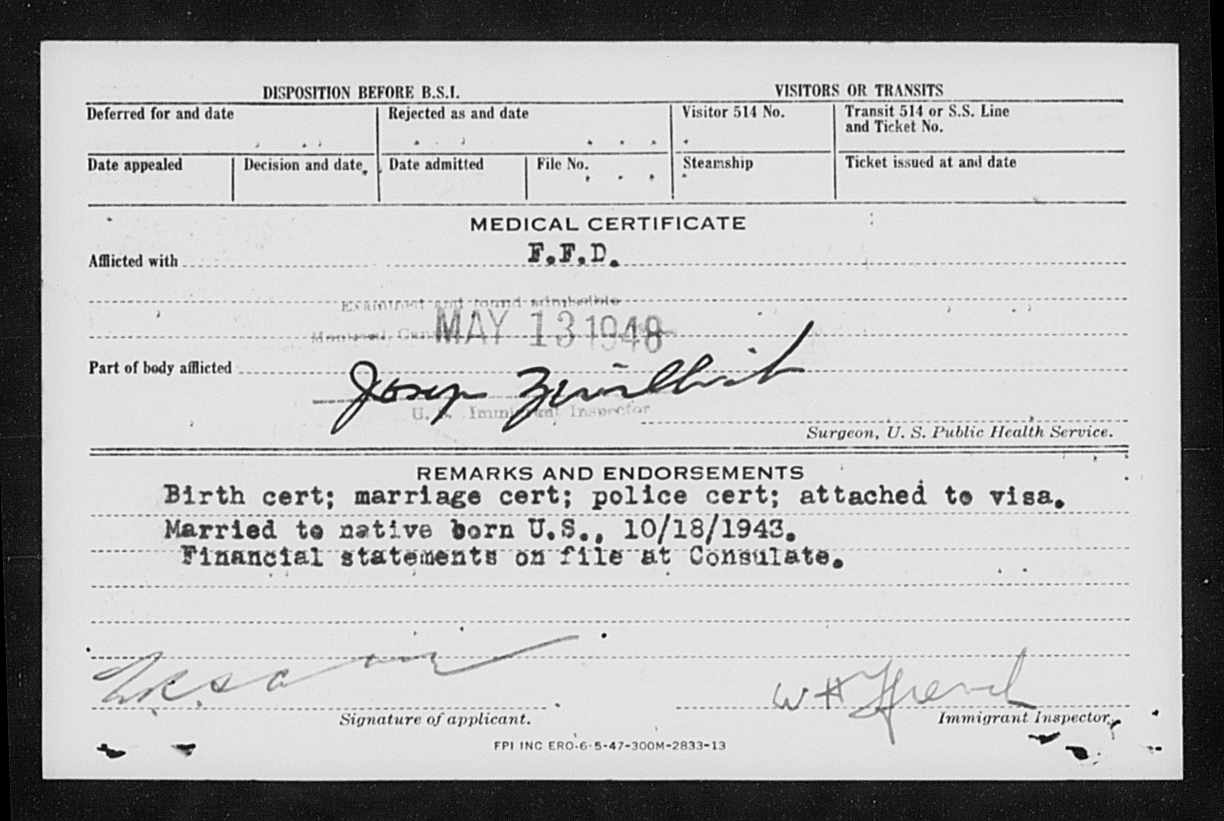 DISPOSITION BEFORE B.S.I. VISITORS OR TRANSITS
Deferred for and date Rejected as and date Visitor 514 No. Transit 514 or S.S. Line
and Ticket No.
Date appealed Decision and date Date admitted File No. Steamship Ticket issued at and date
MEDICAL CERTIFICATE
Afflicted with F.F.D.
Examined and found admissible
Montreal, Can MAY 13 1948
Part of body afflicted
Josep
U. S. Immigrant Inspector
Surgeon, U. S. Public Health Service.
REMARKS AND ENDORSEMENTS
Birth cert; marriage cert; police cert; attached to visa.
Married to native born U.S., 10/18/1943.
Financial statements on file at Consulate.
W H French
Signature of applicant. Immigrant Inspector.
FPI INC ERO-6-5-47-300M-2833-13